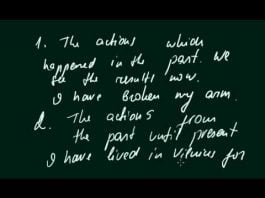 1. The actions which
happened in the past. We
see the results now.
I have broken my arm.
2. The actions from
the past until present
I have lived in Vilnius for